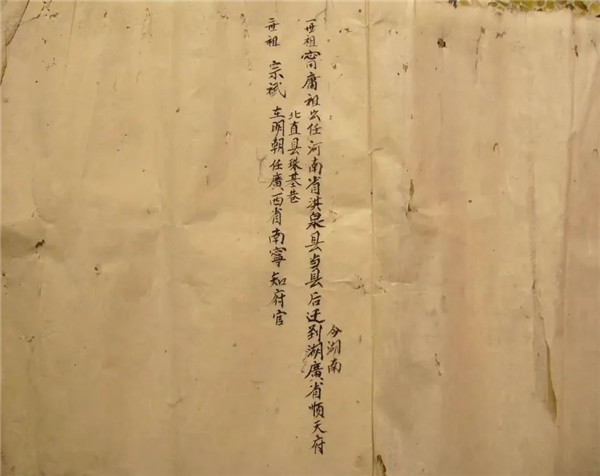 一世祖 甯庸祖公任河南省洪泉县当县后迁到湖廣省順天府
今湖南
北直县珠基巷
二世祖 宗斌 在明朝任廣西省南寧知府官